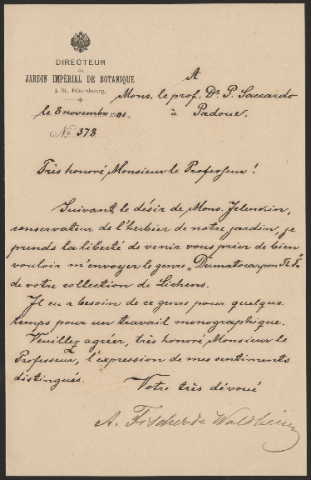 DIRECTEUR
du
JARDIN IMPÉRIAL DE BOTANIQUE
à St. Pétersbourg.
A
Mons. le prof. Dr P. Saccardo
le 8 novembre 1901.
à Padoue.
No 378
Très honoré Monsieur le Professeur!
Suivant le désir de Mons. Jelenkin,
conservateur de l'herbier de notre jardin, je
prends la liberté de venir vous prier de bien
vouloir m'envoyer le genre "Dermatocarpon Th. Fr."
de votre collection de Lichens.
Il en a besoin de ce genre pour quelque
temps pour un travail monographique.
Veuillez agréer, très honoré Monsieur le
Professeur, l'expression de mes sentiments
distingués.
Votre très dévoué
A. Fischer de Waldheim